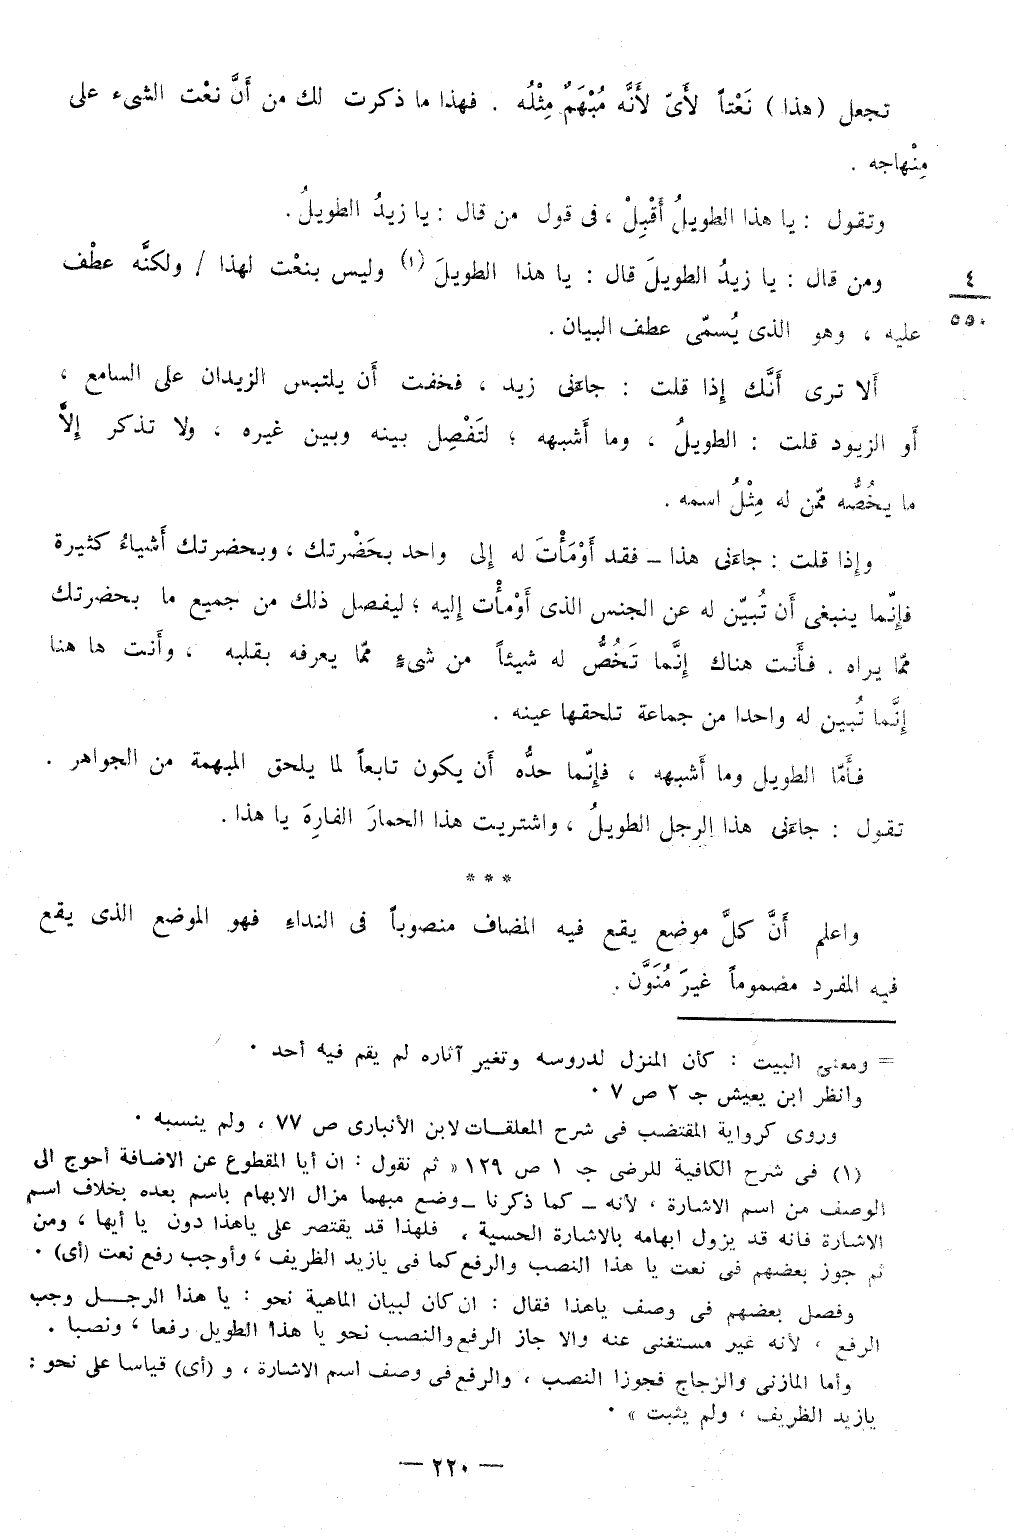 تجعل (هذا) نَعْتاً لأَىّ لأَنَّه مُبْهَمٌ مِثْلُه . فهذا ما ذكرت لك من أَنَّ نعْت الشىء على
مِنْهاجه .
وتقول : يا هذا الطويلُ أَقْبِلْ ، فى قول من قال : يا زيدُ الطويلُ .
ومن قال : يا زيدُ الطويلَ قال : يا هذا الطويلَ (١) وليس بنعْت لهذا / ولكنَّه عطْف
٤
٥٥٠
عليه ، وهو الذى يُسمّى عطف البيان .
أَلا ترى أَنَّك إِذا قلت : جاءَنى زيد ، فخفت أَن يلتبس الزيدان على السامع ،
أَو الزيود قلت : الطويلُ ، وما أَشبهه ؛ لتَفْصِل بينه وبين غيره ، ولا تذكر إِلاَّ
ما يخُصُّه ممّن له مِثْلُ اسمه .
وإِذا قلت : جاءَنى هذا – فقد أَوْمَأْتَ له إِلى واحد بحَضْرتك ، وبحضرتك أَشياءُ كثيرة
فإِنّما ينبغى أَن تُبيّن له عن الجنس الذى أَوْمأْت إِليه ؛ ليفصل ذلك من جميع ما بحضرتك
ممّا يراه . فأَنت هناك إِنَّما تَخُصُّ له شيئاً من شىءٍ ممّا يعرفه بقلبه ، وأَنت ها هنا
إِنَّما تُبين له واحدا من جماعة تلحقها عينه .
فأَمّا الطويل وما أَشبهه ، فإِنّما حدُّه أَن يكون تابعاً لما يلحق المبهمة من الجواهر .
تقول : جاءَنى هذا الرجل الطويلُ ، واشتريت هذا الحمارَ الفارِهَ يا هذا .
* * *
واعلم أَنَّ كلَّ موضع يقع فيه المضاف منصوباً فى النداءِ فهو الموضع الذى يقع
فيه المفرد مضموماً غيرَ مُنَوَّن .
= ومعنى البيت : كأن المنزل لدروسه وتغير آثاره لم يقم فيه أحد ٠
وانظر ابن يعيش جـ ٢ ص ٧ ٠
وروى كرواية المقتضب فى شرح المعلقات لابن الأنبارى ص ٧٧ ، ولم ينسبه ٠
(١) فى شرح الكافية للرضى جـ ١ ص ١٢٩ « ثم نقول : ان أيا المقطوع عن الاضافة أحوج الى
الوصف من اسم الاشارة ، لأنه – كما ذكرنا – وضع مبهما مزال الابهام باسم بعده بخلاف اسم
الاشارة فانه قد يزول ابهامه بالاشارة الحسية ، فلهذا قد يقتصر على ياهذا دون يا أيها ، ومن
ثم جوز بعضهم فى نعت يا هذا النصب والرفع كما فى يازيد الظريف ، وأوجب رفع نعت (أى) ٠
وفصل بعضهم فى وصف ياهذا فقال : ان كان لبيان الماهية نحو : يا هذا الرجل وجب
الرفع ، لأنه غير مستغنى عنه والا جاز الرفع والنصب نحو يا هذا الطويل رفعا ، ونصبا .
وأما المازنى والزجاج فجوزا النصب ، والرفع فى وصف اسم الاشارة ، و (أى) قياسا على نحو :
يازيد الظريف ، ولم يثبت » ٠
— ٢٢٠ —